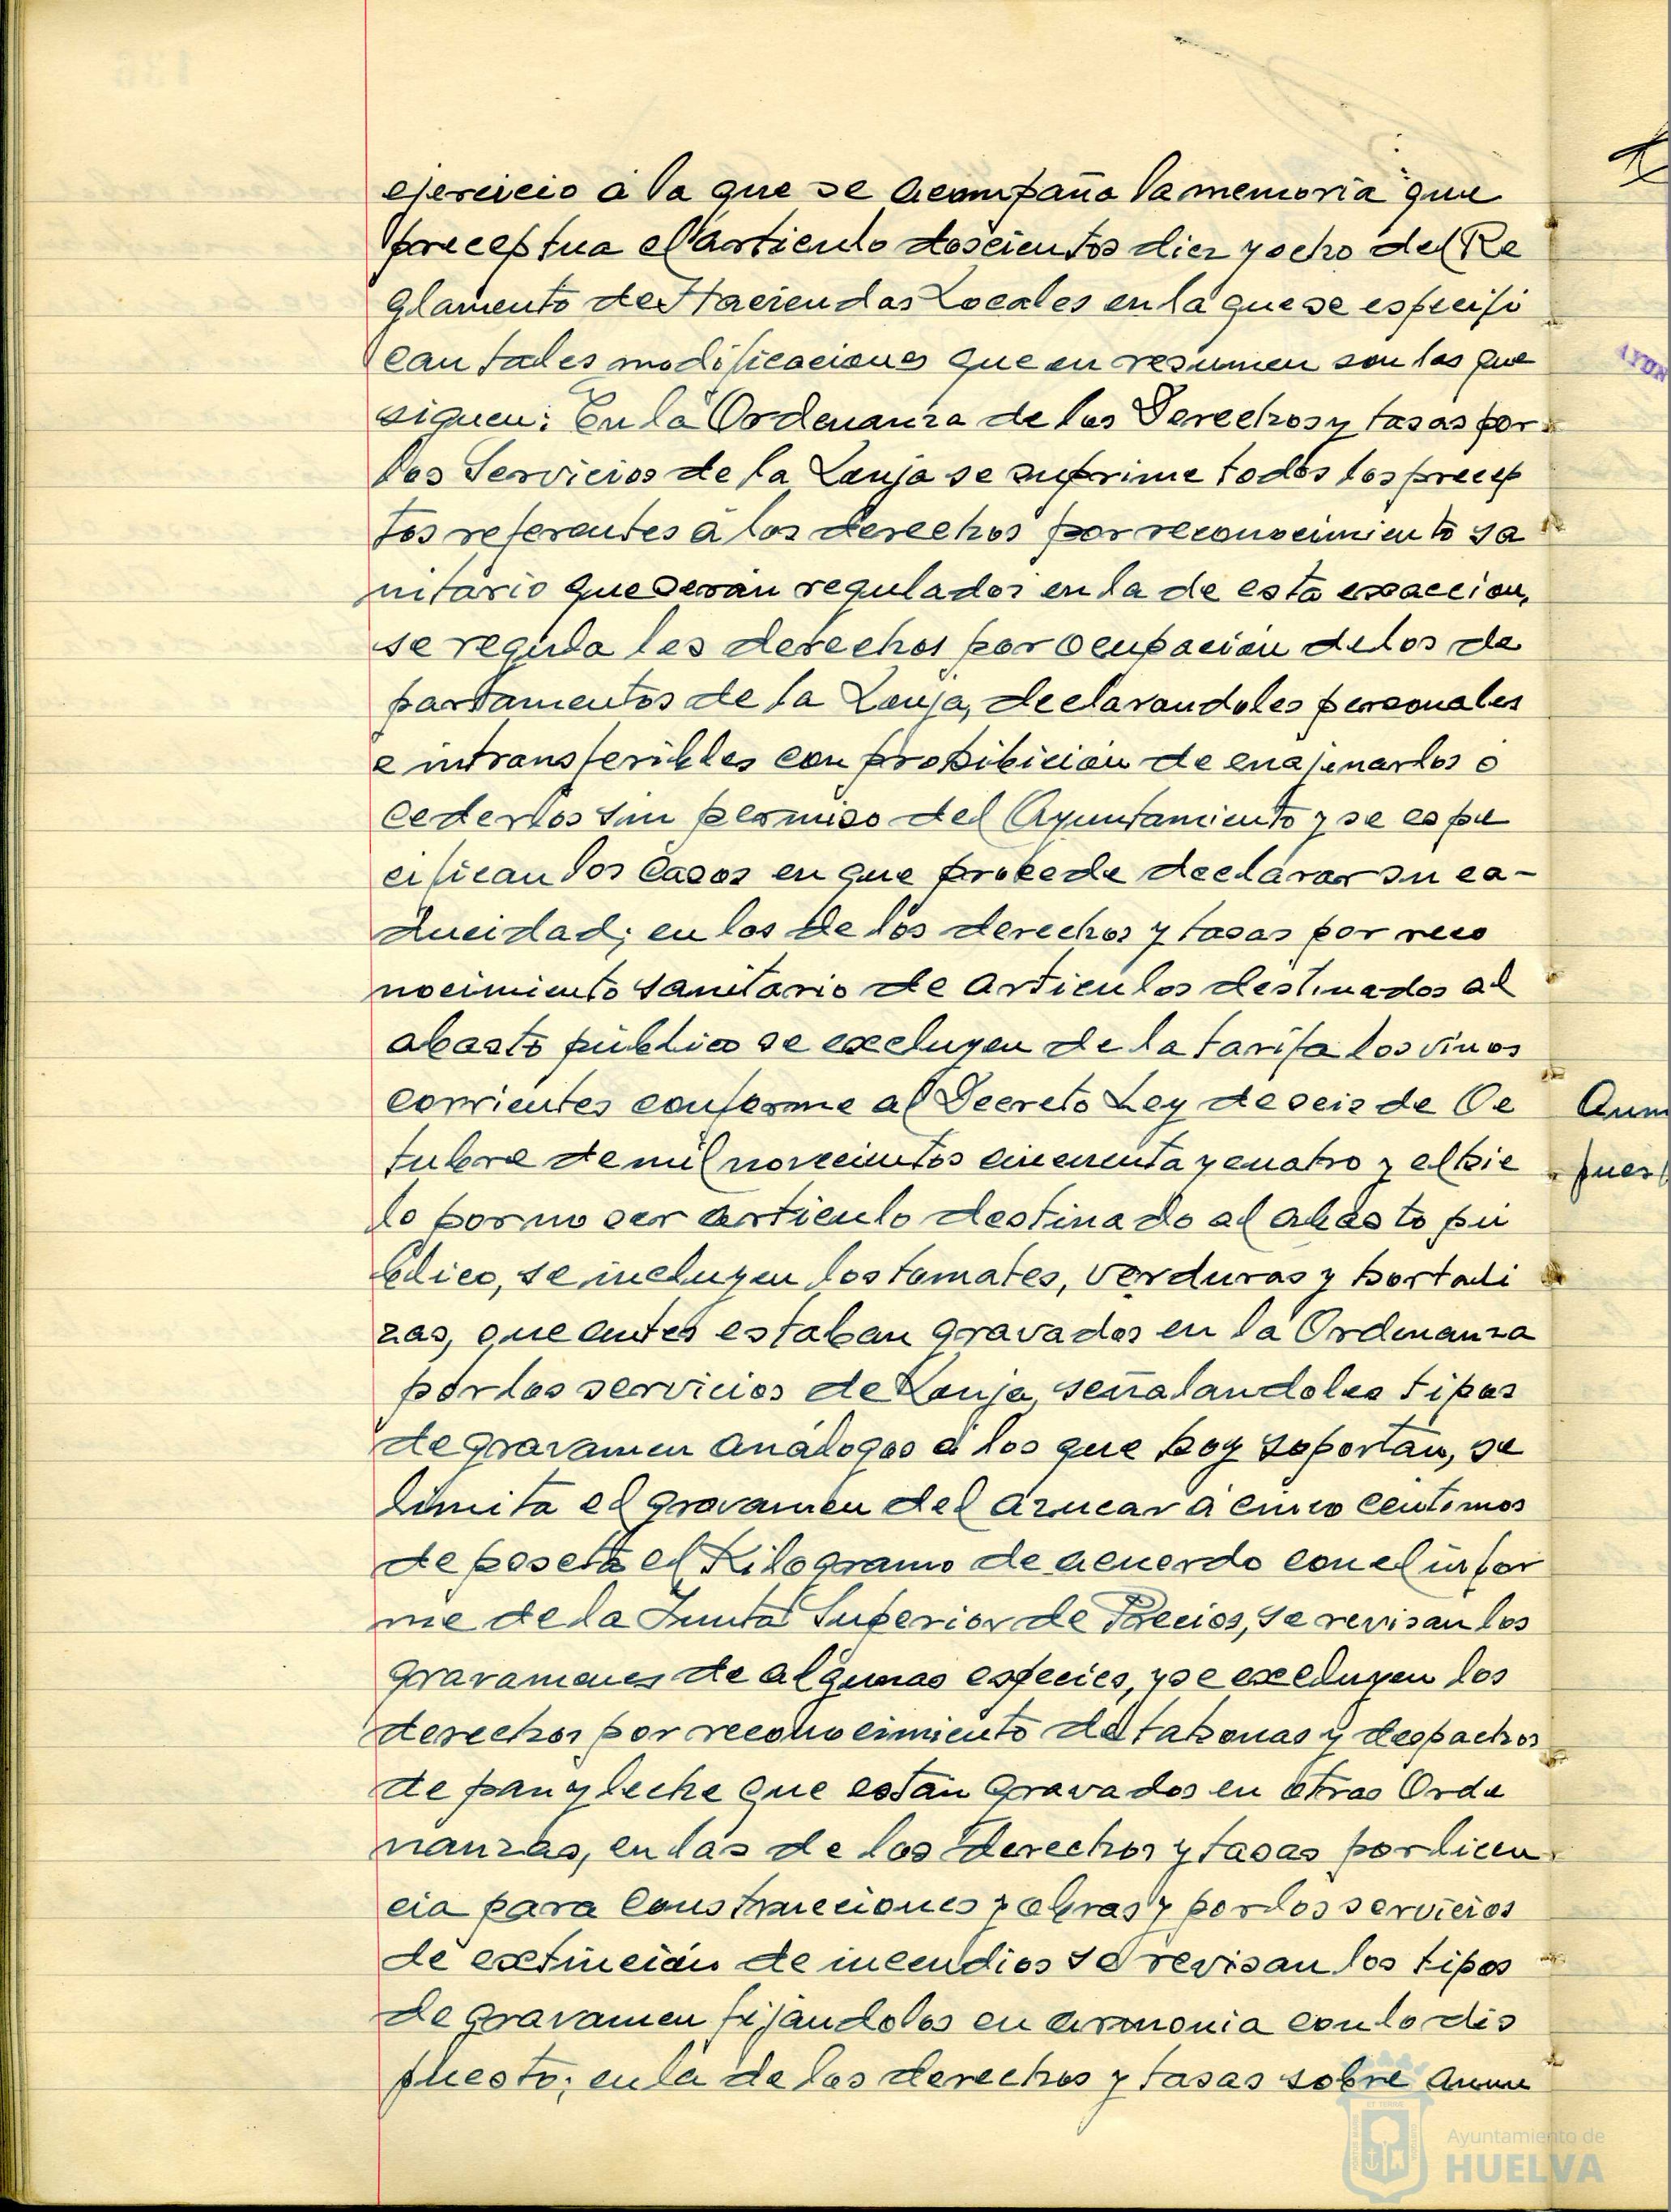 ejercicio á la que se acompaña la memoria que
preceptua el artículo doscientos diez y ocho del Re
glamento de Haciendas Locales en la que se especifi
can tales modificaciones que en resumen son las que
siguen: En la Ordenanza de los Derechos y tasas por
los Servicios de la Lonja se suprime todos los precep
tos referentes á los derechos por reconocimiento sa
nitario que serán regulados en la de esta exacción,
se regula los derechos por ocupación de los de
partamentos de la Lonja, declarandoles personales
e intransferibles con prohibición de enajenarlos ó
cederlos sin permiso del Ayuntamiento y se espe
cifican los casos en que procede declarar su ca-
ducidad; en los de los derechos y tasas por reco
nocimiento sanitario de articulos destinados al
abasto público se excluyen de la tarifa los vinos
corrientes conforme al Decreto Ley de seis de Oc
tubre de mil novecientos cincuenta y cuatro y el hie
lo por no ser articulo destinado al abasto pú
blico, se incluyen los tomates, verduras y hortali
zas, que antes estaban gravados en la Ordenanza
por los servicios de Lonja, señalandoles tipos
de gravamen análogos á los que hoy soportan, se
limita el gravamen del azucar á cinco centimos
de peseta el Kilogramo de acuerdo con el infor
me de la Junta Superior de Precios, se revisan los
gravamenes de algunas especies, y se excluyen los
derechos por reconocimiento de tahonas y despachos
de pan y leche que están gravados en otras Orde
nanzas, en las de los derechos y tasas por licen
cia para construcciones y obras y por los servicios
de extinción de incendios se revisan los tipos
de gravamen fijándolos en armonia con lo dis
puesto; en la de los derechos y tasas sobre anun
Aum
pues
AYUN
Ayuntamiento de
HUELVA